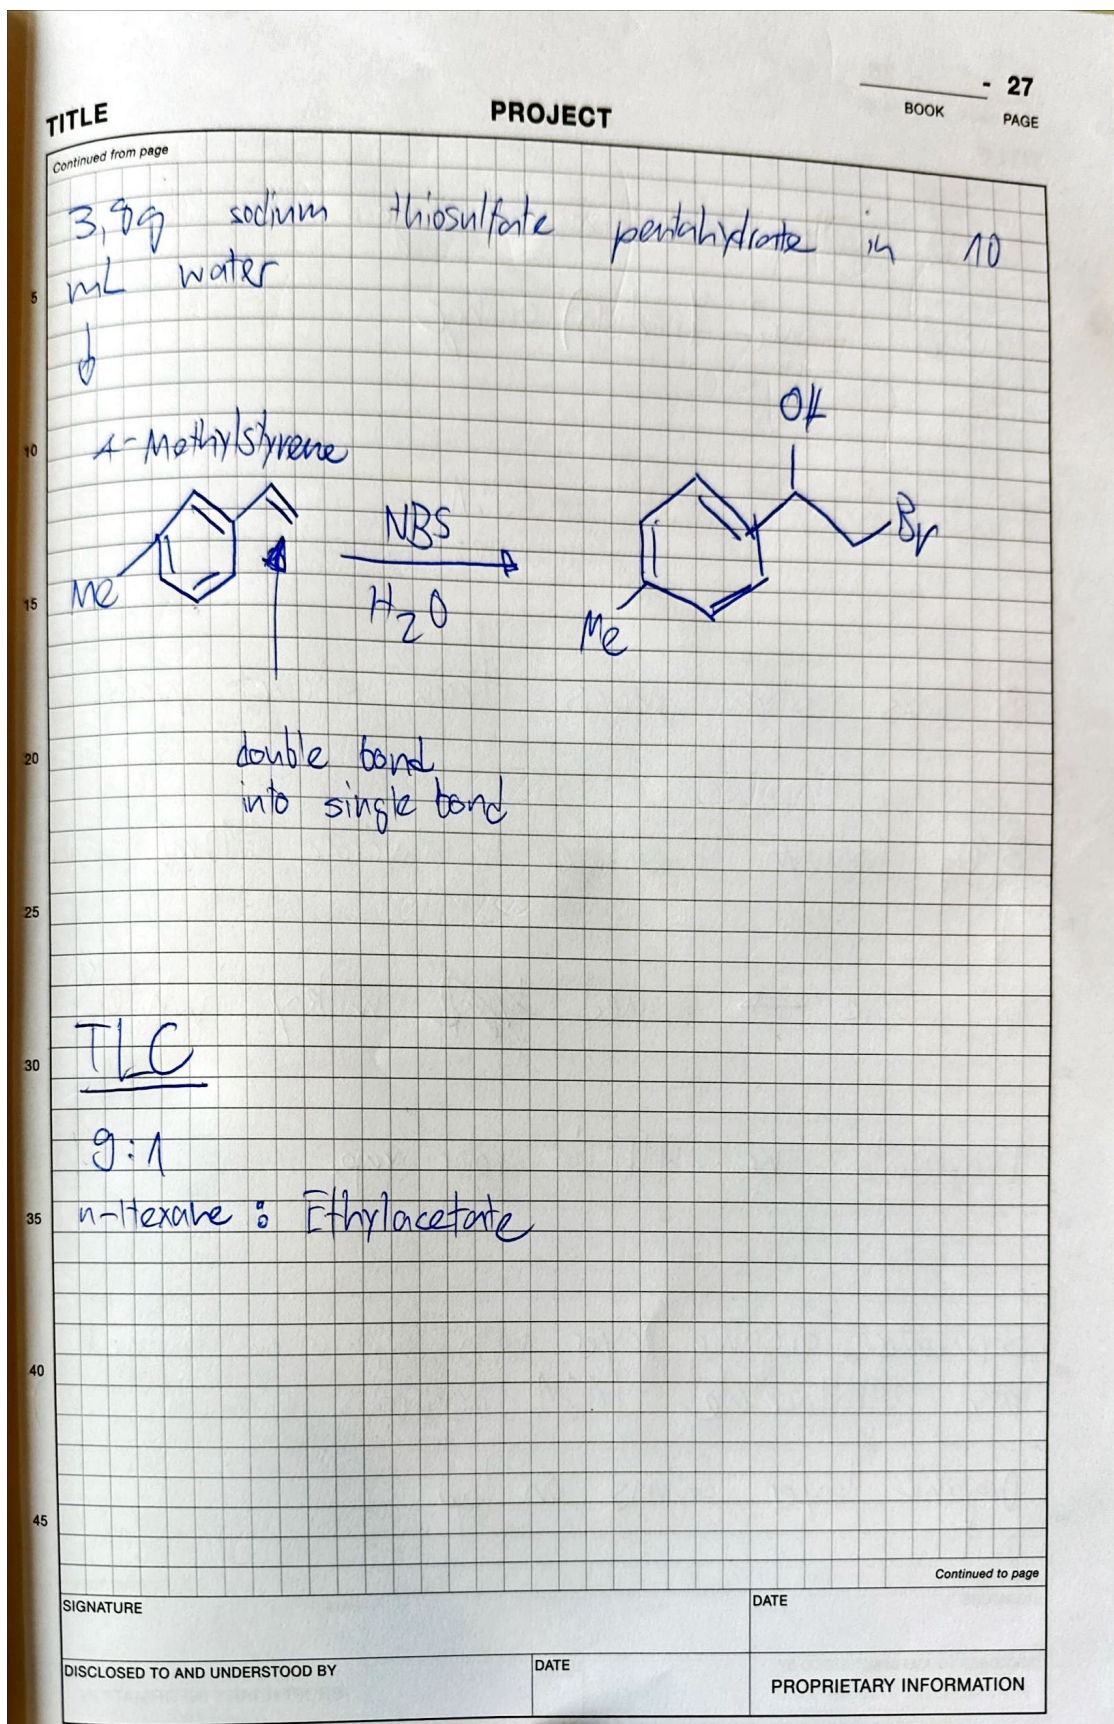 - 27
TITLE
PROJECT
BOOK
PAGE
Continued from page
3,8g sodium thiosulfate pentahydrate in 10
mL water
5
10
4-Methylstyrene
OH
NBS
Br
Me
H2O
Me
15
20
double bond
into single bond
25
TLC
30
9:1
35
n-Hexane : Ethylacetate
40
45
Continued to page
SIGNATURE
DATE
DISCLOSED TO AND UNDERSTOOD BY
DATE
PROPRIETARY INFORMATION